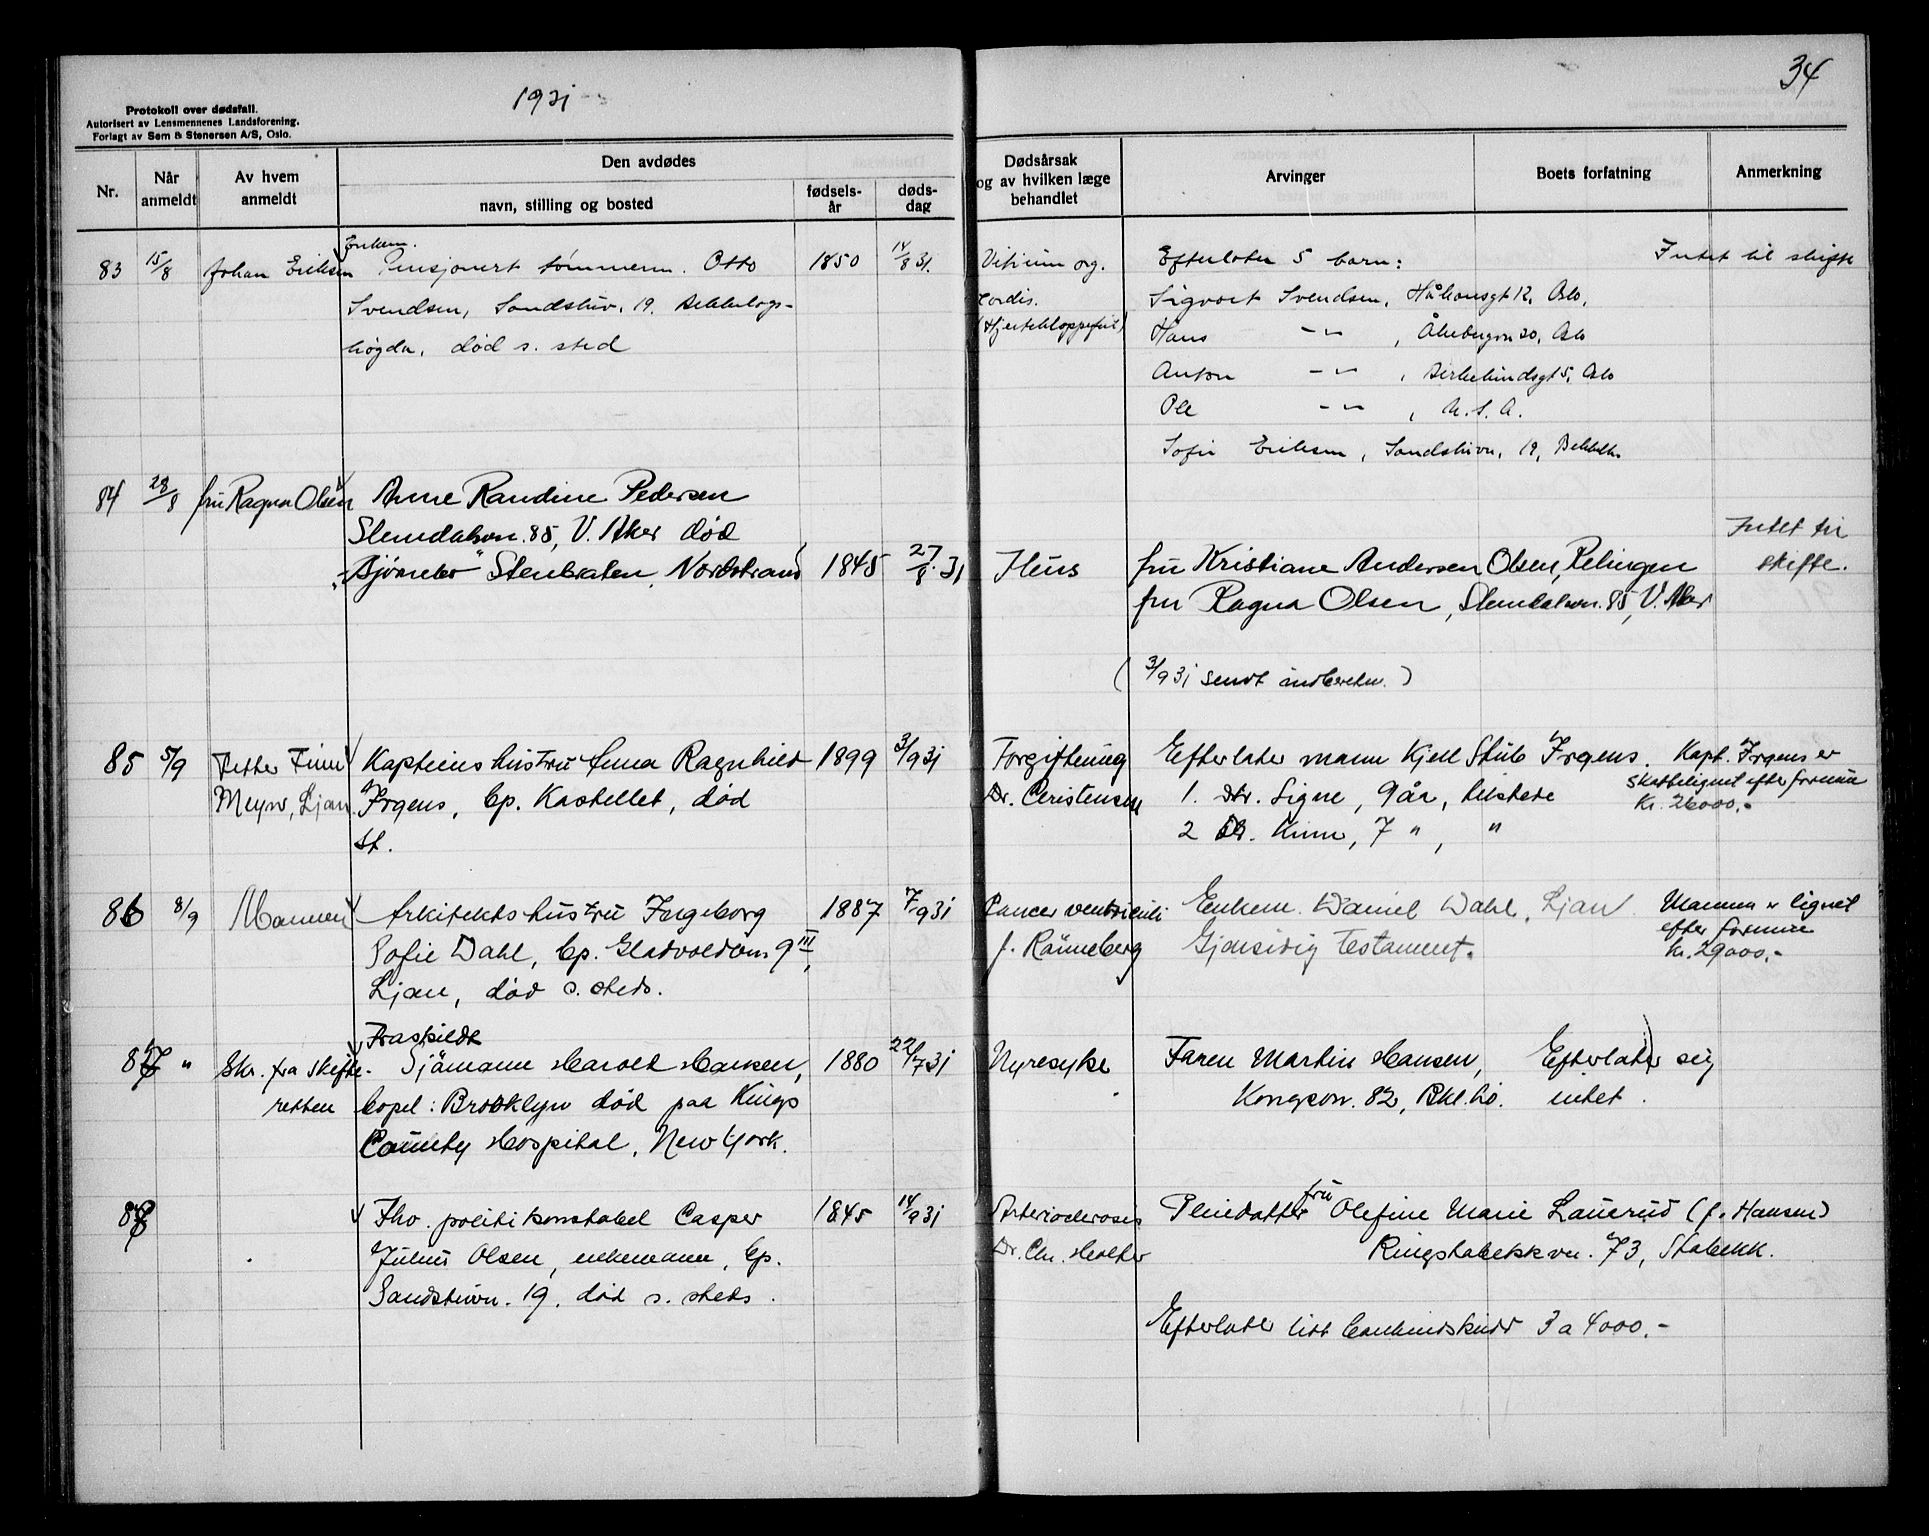 1931
34
Protokoll over dødsfall.
Autorisert av Lensmennenes Landsforening.
Forlagt av Sem & Stenersen A/S, Oslo.
Nr.
Når anmeldt
Av hvem anmeldt
Den avdødes
navn, stilling og bosted
fødsels-år
døds-dag
Dødsårsak og av hvilken læge behandlet
Arvinger
Boets forfatning
Anmerkning
Enkem.
83 15/8 Johan Eriksen Pensjonert tømmerm. Otto 1850 14/8 31. Vitium org. Efterlater 5 barn: Intet til skifte
Svendsen, Sandstuv. 19, Bekkelags- Cordis. Sigvart Svendsen, Håkonsgt 12, Oslo,
høgda, død s. sted (Hjerteklappefeil) Hans -"- , Åkebergvn 20, Oslo
Anton -"- , Birkelundsgt 5, Oslo
Ole -"- , U.S.A.
Sofie Eriksen, Sandstuvn, 19, Bekkelh.
84 28/8 fru Ragna Olsen Anne Randine Pedersen
Slemdalsvn. 85, V. Aker død Intet til
"Bjørnebo" Stenbråten, Nordstrand 1845 27/8.31 fru Kristiane Andersen Olsen, Relingen skifte.
fru Ragna Olsen, Slemdalsvn. 85, V. Aker
(3/9 31 sendt indberetn.)
85 5/9 Petter Finn Kapteins hustru Anna Ragnhild 1899 3/9 31 Forgiftning Efterlater mann Kjell Stub Irgens. Kapt. Irgens er
Meyer, Ljan Irgens, bp. Kastellet, død Dr. Christensen 1. Dtr. Signe, 9 år, tilstede skattelignet efter formue
kr. 26000.-
st. 2 Dtr. , 7 " , "
86 8/9 Mannen Arkitekts hustru Ingeborg 1887 7/9 31 Cancer ventriculi Enkem. Daniel Dahl, Ljan Mannen er lignet
Sofie Dahl, bp. Gladvoldvn. 9 III, f. Rønneberg Gjensidig testament. efter formue
kr. 29000.-
Ljan, død s. steds.
Fraskildt
87 " Skr. fra Skifte- Sjømann Harold Hansen, 1880 22/7 31 Nyresyke Faren Martin Hansen, Efterlater sig
retten bopel: Brooklyn død paa Kings Kongsvn. 82, Bkl.hø. intet.
County Hospital, New York.
88 Fhv. politikonstabel Casper 1845 14/9 31 Arteriosclerosis Pleiedatter fru Olefine Marie Lauerud (f. Hansen)
Julius Olsen, enkemann, bp. Dr. Chr. Holter Ringstabekkvn. 73, Stabekk.
Sandstuvn. 19, død s. steds.
Efterlater litt bankinnskudd 3 a 4000.-